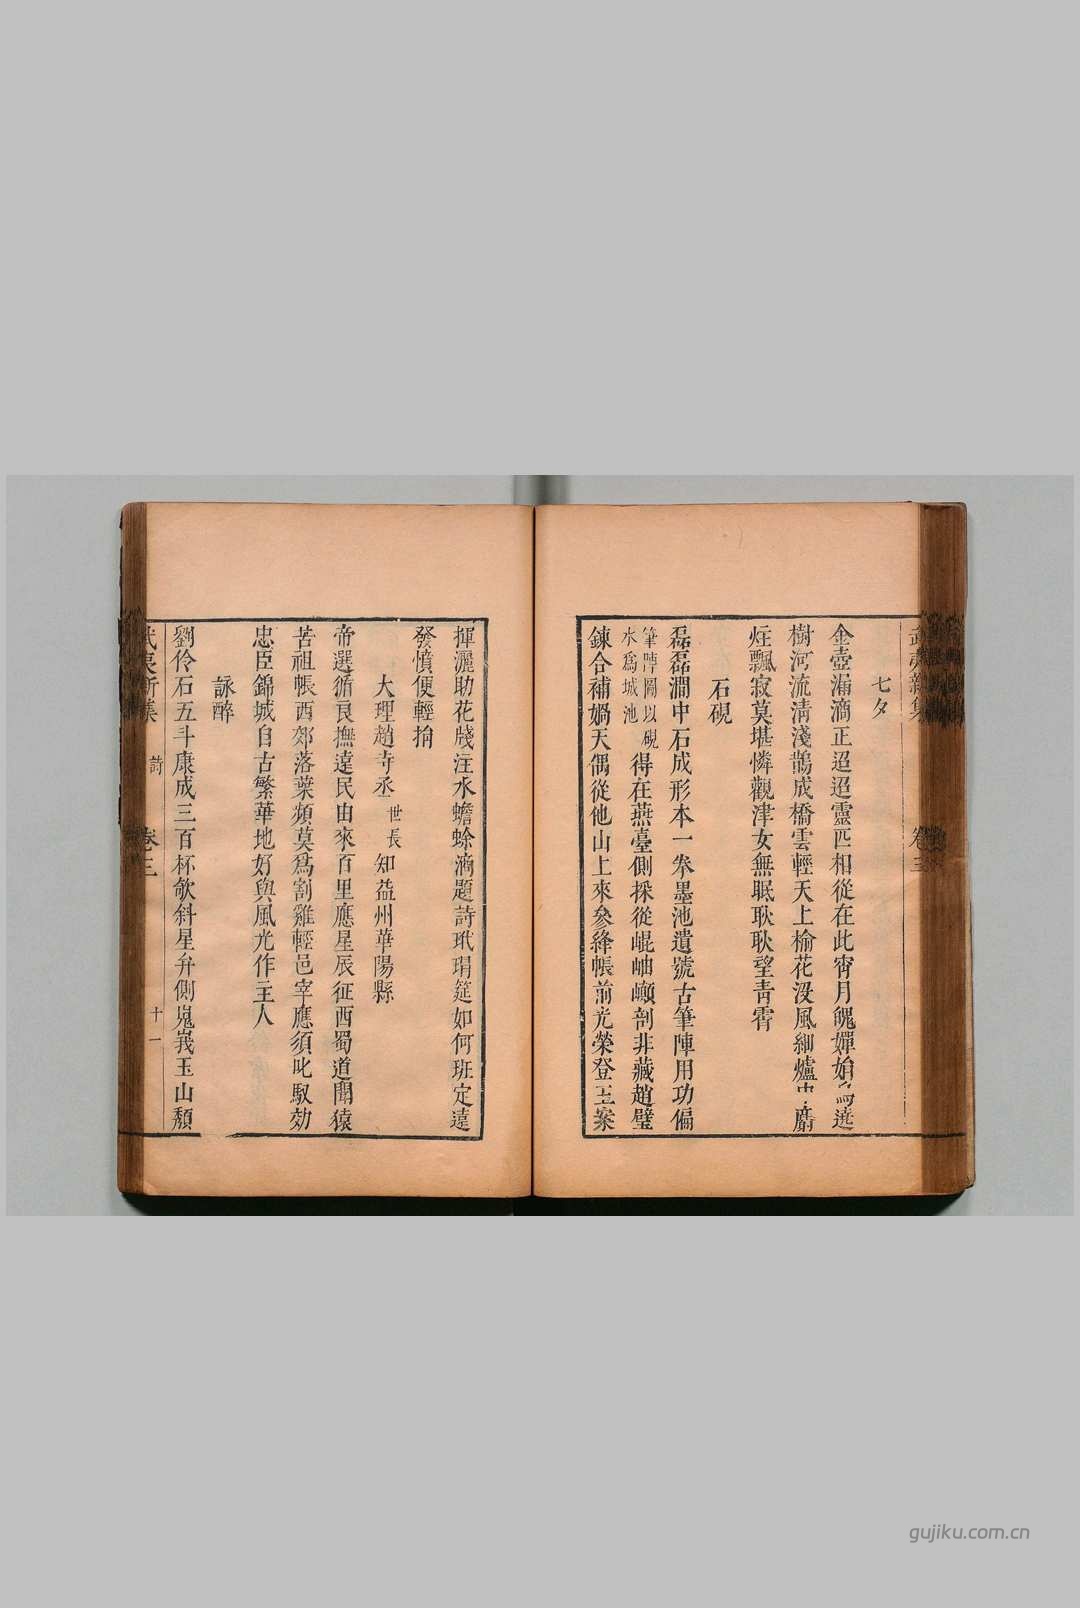 武夷新集 卷三
七夕
金壺漏滴正迢迢靈匹相從在此宵月魄嬋娟烏遶
樹河流清淺鵲成橋雲輕天上榆花沒風細爐中麝
炷飄寂莫堪憐觀津女無眠耿耿望青霄
石硯
磊磊澗中石成形本一拳墨池遺號古筆陣用功偏
筆陣圖以硯
水爲城池
得在燕臺側採從崐岫巔剖非藏趙璧
鍊合補媧天偶從他山上來參絳帳前光榮登玉案
揮灑助花牋注水蟾蜍滴題詩玳瑁筵如何班定遠
發憤便輕捐
大理趙寺丞世長知益州華陽縣
帝選循良撫遠民由來百里應星辰征西蜀道聞猿
苦祖帳西郊落葉頻莫爲割雞輕邑宰應須叱馭効
忠臣錦城自古繁華地好與風光作主人
詠醉
劉伶石五斗康成三百杯欹斜星弁側嵬峩玉山頹
武夷新集 詩 卷三 十一
gujiku.com.cn